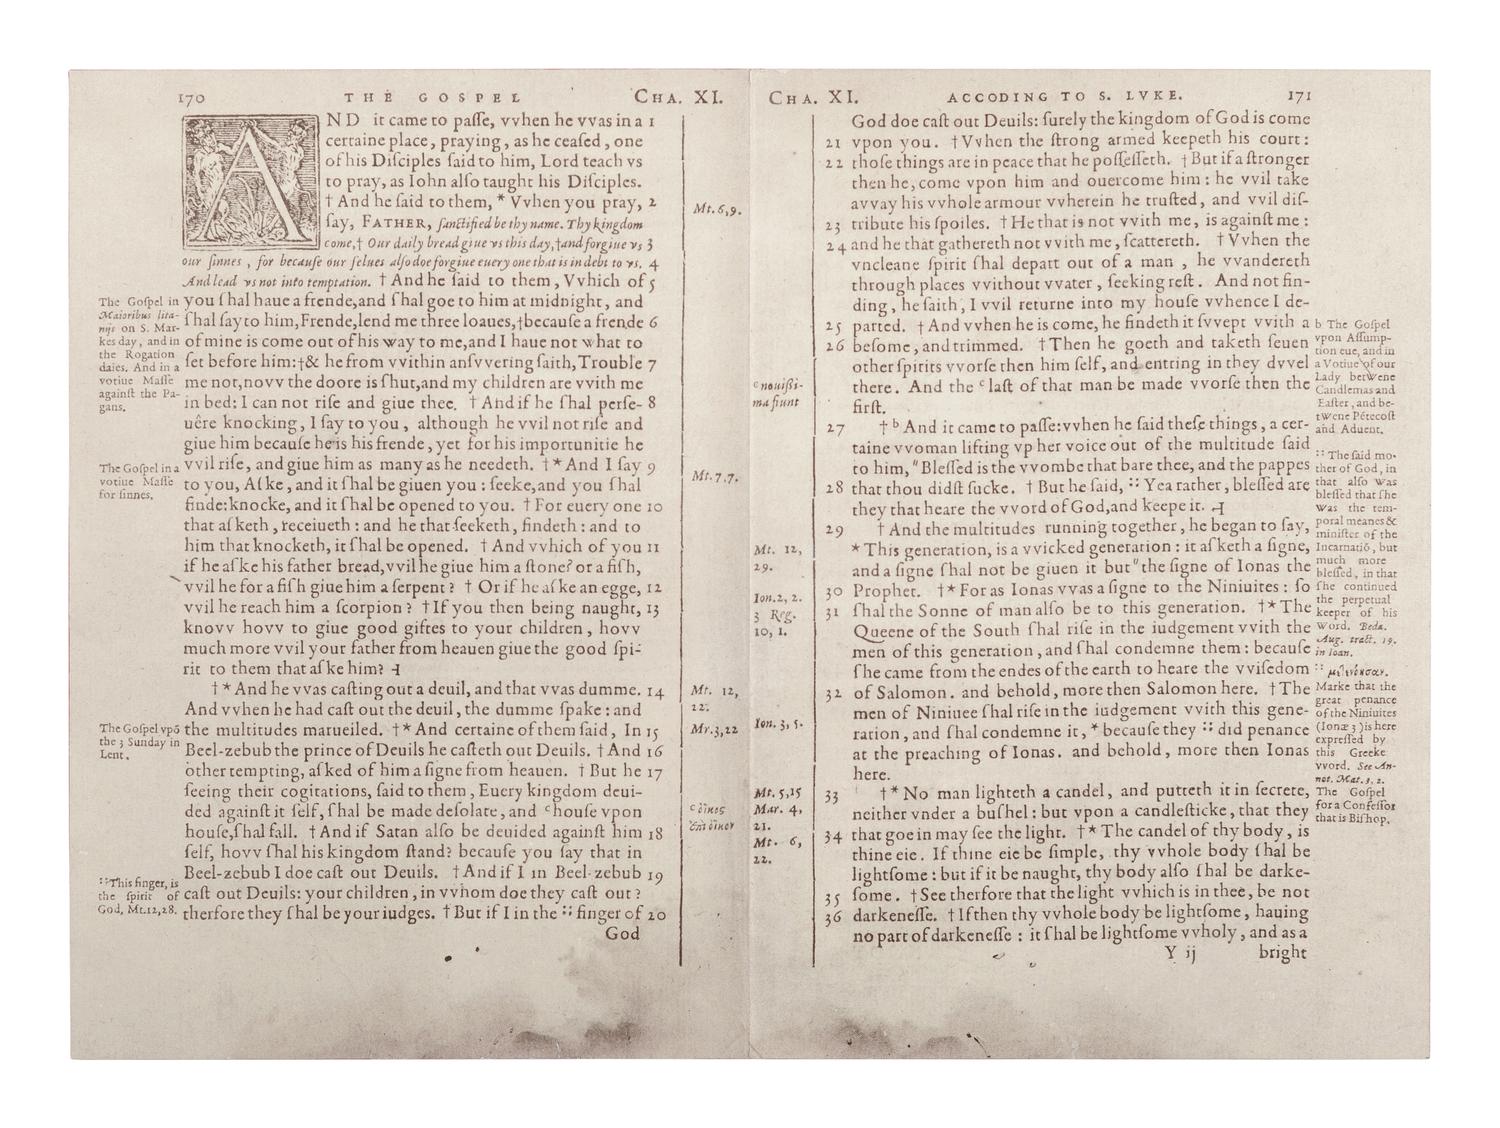 170 THE GOSPEL CHA. XI.
AND it came to paſſe, vvhen he vvas in a 1
certaine place, praying, as he ceaſed, one
of his Diſciples ſaid to him, Lord teach vs
to pray, as Iohn alſo taught his Diſciples.
† And he ſaid to them, * Vvhen you pray, 2
ſay, FATHER, ſanctified be thy name. Thy kingdom
come,† Our daily bread giue vs this day,†and forgiue vs 3
our ſinnes , for becauſe our ſelues alſo doe forgiue euery one that is in debt to vs. 4
And lead vs not into temptation. † And he ſaid to them , Vvhich of 5
you ſhal haue a frende,and ſhal goe to him at midnight, and
ſhal ſay to him,Frende,lend me three loaues,†becauſe a frende 6
of mine is come out of his way to me,and I haue not what to
ſet before him:†& he from vvithin anſvvering ſaith,Trouble 7
me not,novv the doore is ſhut,and my children are vvith me
in bed: I can not riſe and giue thee. † And if he ſhal perſe- 8
uêre knocking, I ſay to you , although he vvil not riſe and
giue him becauſe he is his frende , yet for his importunitie he
vvil riſe, and giue him as many as he needeth. †*And I ſay 9
to you, Aſke , and it ſhal be giuen you : ſeeke,and you ſhal
finde: knocke, and it ſhal be opened to you. † For euery one 10
that aſketh , receiueth : and he that ſeeketh, findeth : and to
him that knocketh, it ſhal be opened. † And vvhich of you 11
if he aſke his father bread,vvil he giue him a ſtone? or a fiſh,
vvil he for a fiſh giue him a ſerpent? † Or if he aſke an egge, 12
vvil he reach him a ſcorpion? † If you then being naught, 13
knovv hovv to giue good giftes to your children , hovv
much more vvil your father from heauen giue the good ſpi-
rit to them that aſke him? ⊣
†*And he vvas caſting out a deuil, and that vvas dumme. 14
And vvhen he had caſt out the deuil, the dumme ſpake: and
the multitudes marueiled. †* And certaine of them ſaid, In 15
Beel-zebub the prince of Deuils he caſteth out Deuils. † And 16
other tempting, aſked of him a ſigne from heauen. † But he 17
ſeeing their cogitations, ſaid to them , Euery kingdom deui-
ded againſt it ſelf, ſhal be made deſolate, and ᶜhouſe vpon
houſe,ſhal fall. † And if Satan alſo be deuided againſt him 18
ſelf, hovv ſhal his kingdom ſtand? becauſe you ſay that in
Beel-zebub I doe caſt out Deuils. † And if I in Beel-zebub 19
caſt out Deuils: your children , in vvhom doe they caſt out?
therfore they ſhal be your iudges. † But if I in the ∷ finger of 20
God
The Goſpel in
Maioribus lita-
nijs on S. Mar-
kes day, and in
the Rogation
daies. And in a
votiue Maſſe
againſt the Pa-
gans.
The Goſpel in a
votiue Maſſe
for ſinnes.
The Goſpel vpō
the 3 Sunday in
Lent.
∷This finger, is
the ſpirit of
God, Mt.12,28.
Mt.6,9.
Mt.7,7.
Mt. 12,
22.
Mr.3,22
ᶜ οἶκος
ἐπὶ οἶκον
CHA. XI. ACCODING TO S. LVKE. 171
God doe caſt out Deuils: ſurely the kingdom of God is come
21 vpon you. † Vvhen the ſtrong armed keepeth his court:
22 thoſe things are in peace that he poſſeſſeth. † But if a ſtronger
then he, come vpon him and ouercome him: he vvil take
avvay his vvhole armour vvherein he truſted, and vvil diſ-
23 tribute his ſpoiles. † He that is not vvith me, is againſt me :
24 and he that gathereth not vvith me, ſcattereth. † Vvhen the
vncleane ſpirit ſhal depart out of a man , he vvandereth
through places vvithout vvater , ſeeking reſt. And not fin-
ding, he ſaith, I vvil returne into my houſe vvhence I de-
25 parted. † And vvhen he is come, he findeth it ſvvept vvith a
26 beſome, and trimmed. † Then he goeth and taketh ſeuen
other ſpirits vvorſe then him ſelf, and entring in they dvvel
there. And the ᶜlaſt of that man be made vvorſe then the
firſt.
27 † ᵇ And it came to paſſe: vvhen he ſaid theſe things, a cer-
taine vvoman lifting vp her voice out of the multitude ſaid
to him, "Bleſſed is the vvombe that bare thee, and the pappes
28 that thou didſt ſucke. † But he ſaid, ∷ Yea rather, bleſſed are
they that heare the vvord of God,and keepe it. ⊣
29 † And the multitudes running together, he began to ſay,
*This generation, is a vvicked generation : it aſketh a ſigne,
and a ſigne ſhal not be giuen it but"the ſigne of Ionas the
30 Prophet. †*For as Ionas vvas a ſigne to the Niniuites : ſo
31 ſhal the Sonne of man alſo be to this generation. †*The
Queene of the South ſhal riſe in the iudgement vvith the
men of this generation , and ſhal condemne them: becauſe
ſhe came from the endes of the earth to heare the vviſedom
32 of Salomon. and behold , more then Salomon here. † The
men of Niniuee ſhal riſe in the iudgement vvith this gene-
ration, and ſhal condemne it, * becauſe they ∷ did penance
at the preaching of Ionas. and behold, more then Ionas
here.
33 †* No man lighteth a candel, and putteth it in ſecrete,
neither vnder a buſhel: but vpon a candleſticke, that they
34 that goe in may ſee the light. †* The candel of thy body , is
thine eie. If thine eie be ſimple, thy vvhole body ſhal be
lightſome : but if it be naught, thy body alſo ſhal be darke-
35 ſome. † See therfore that the light vvhich is in thee, be not
36 darkeneſſe. † If then thy vvhole body be lightſome, hauing
no part of darkeneſſe : it ſhal be lightſome vvholy , and as a
Y ij bright
ᶜ nouiſsi-
ma fiunt
Mt. 12,
29.
Ion.2, 2.
3 Reg.
10, 1.
Ion. 3, 5.
Mt. 5,15
Mar. 4,
21.
Mt. 6,
22.
b The Goſpel
vpon Aſſump-
tion eue, and in
a Votiue of our
Lady betWene
Candlemas and
Eaſter, and be-
tWene Pētecoſt
and Aduent.
∷ The ſaid mo-
ther of God, in
that alſo Was
bleſſed that ſhe
Was the tem-
poral meanes &
miniſter of the
Incarnatiō, but
much more
bleſſed, in that
ſhe continued
the perpetual
keeper of his
Word. Beda.
Aug. tract. 19.
in Ioan.
∷ μετενόησαν.
Marke that the
great penance
of the Niniuites
(Ionæ 3) is here
expreſſed by
this Greeke
vvord. See An-
not. Mat. 3, 2.
The Goſpel
for a Confeſſor
that is Biſhop.